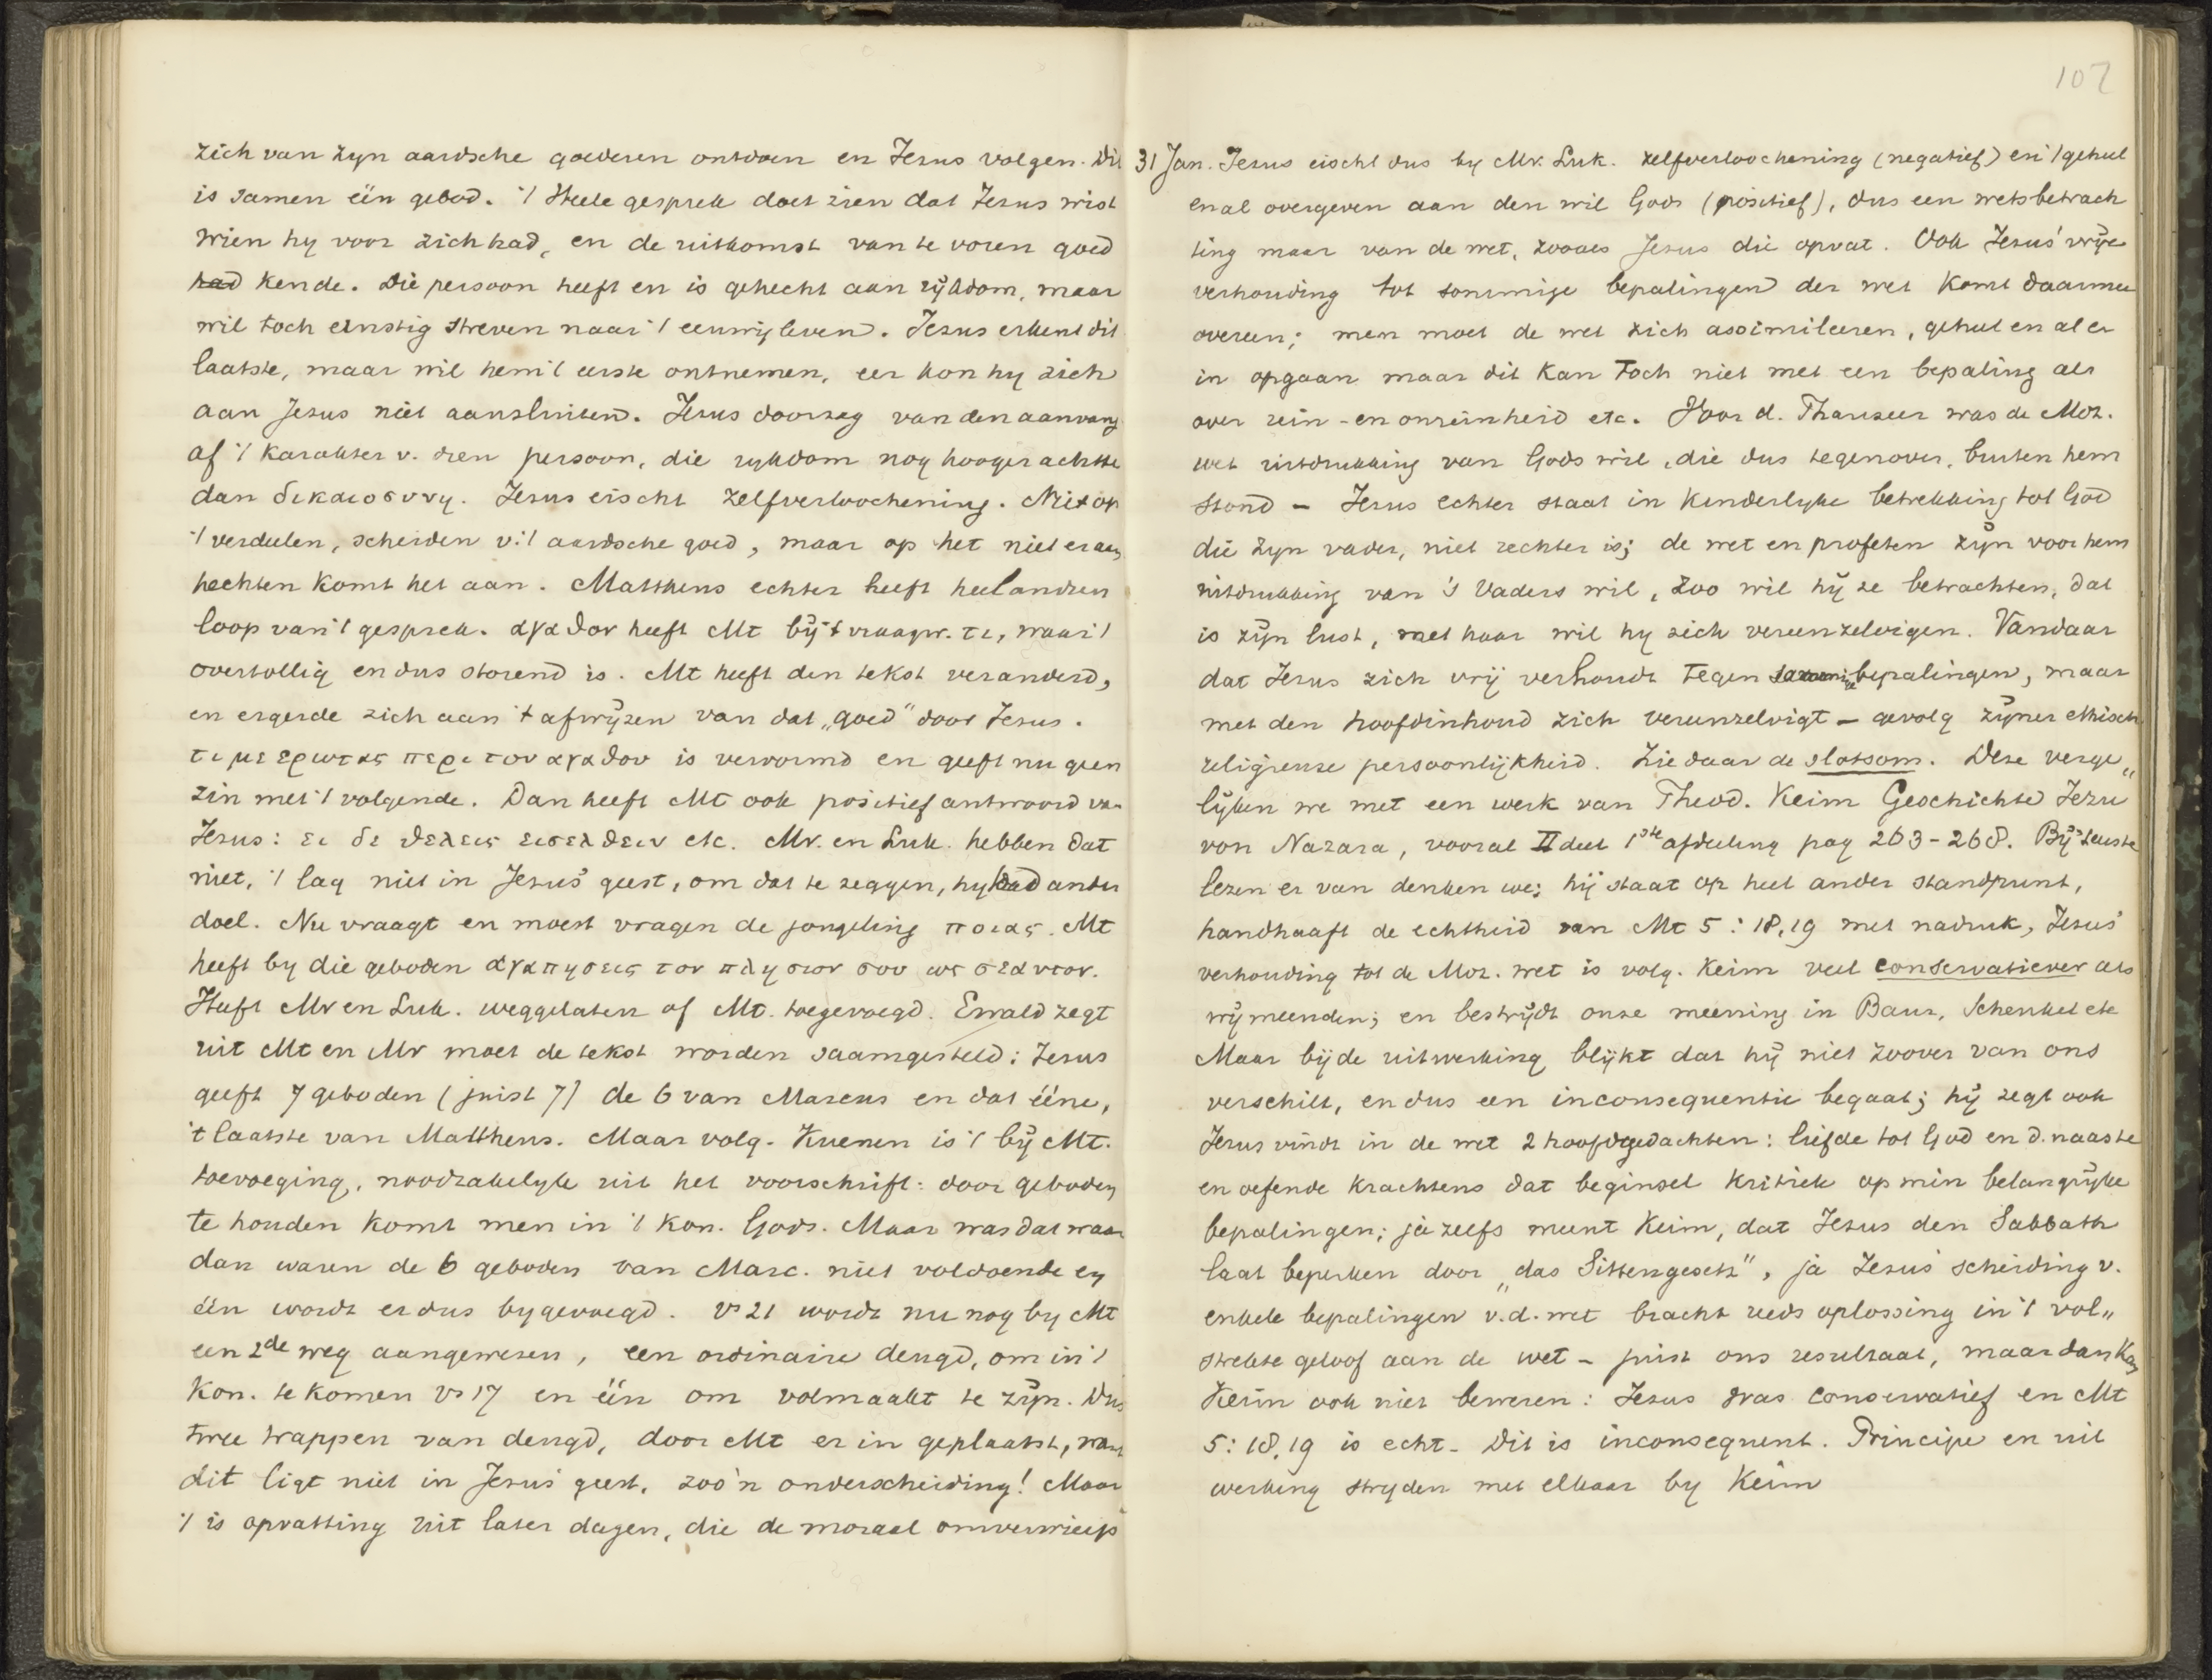 zich van zyn aardsche goederen ontdoen en Jezus volgen. Dit
is samen één gebod. 't Heele gesprek doet zien dat Jezus wist
wien hy voor zich had, en de uitkomst van te voren goed
had kende. Die persoon heeft en is gehecht aan rijkdom, maar
wil toch ernstig streven naar 't eeuwig leven. Jezus erkent dit
laatste, maar wil hem 't eerste ontnemen, eer kon hy zich
aan Jezus niet aansluiten. Jezus doorzag van den aanvang
af 't karakter v. dien persoon, die rykdom nog hooger achtte
dan δικαιοσυνη. Jezus eischt zelfverloochening. Niet op
't verdeelen, scheiden v. 't aardsche goed, maar op het niet eraan
hechten komt het aan. Mattheus echter heeft heel andren
loop van 't gesprek. αγαθον heeft Mt bij 't vraagw. τι, waar 't
overtollig en dus storend is. Mt heeft den tekst veranderd,
en ergerde zich aan 't afwijzen van dat „goed" door Jezus.
τι με ερωτας περι του αγαθου is vervormd en geeft nu geen
zin met 't volgende. Dan heeft Mt ook positief antwoord van
Jezus: ει δε θελεις εισελθειν etc. Mr. en Luk. hebben dat
niet, 't lag niet in Jezus' geest, om dat te zeggen, hy had ander
doel. Nu vraagt en moest vragen de jongeling ποιας. Mt
heeft by die geboden αγαπησεις τον πλησιον σου ως σεαυτον.
Heeft Mr en Luk. weggelaten of Mt. toegevoegd. Ewald zegt
uit Mt en Mr moet de tekst worden saamgesteld: Jezus
geeft 7 geboden (juist 7) de 6 van Marcus en dat ééne,
't laatste van Mattheus. Maar volg. Kuenen is 't bij Mt.
toevoeging, noodzakelyk uit het voorschrift: door geboden
te houden komt men in 't Kon. Gods. Maar was dat waar
dan waren de 6 geboden van Marc. niet voldoende en
één wordt er dus bygevoegd. vs 21 wordt nu nog by Mt
een 2de weg aangewezen, een ordinaire deugd, om in 't
Kon. te komen vs 17 en één om volmaakt te zijn. Dus
twee trappen van deugd, door Mt er in geplaatst, want
dit ligt niet in Jezus' geest, zoo'n onderscheiding! Maar
't is opvatting uit later dagen, die de moraal omverwierp
107
31 Jan. Jezus eischt dus by Mr. Luk. zelfverloochening (negatief) en 't geheel
en al overgeven aan den wil Gods (positief), dus een wetsbetrach
ting maar van de wet, zooals Jezus die opvat. Ook Jezus' vrije
verhouding tot sommige bepalingen der wet komt daarmee
overeen; men moet de wet zich assimileeren, geheel en al er
in opgaan maar dit kan toch niet met een bepaling als
over rein- en onreinheid etc. Voor d. Pharizeer was de Moz.
wet uitdrukking van Gods wil, die dus tegenover, buiten hem
stond – Jezus echter staat in kinderlyke betrekking tot God
die zyn vader, niet rechter is; de wet en profeten zijn voor hem
uitdrukking van 's Vaders wil, zoo wil hij ze betrachten, dat
is zijn lust, met haar wil hy zich vereenzelvigen. Vandaar
dat Jezus zich vrij verhoudt tegen sommige bepalingen, maar
met den hoofdinhoud zich vereenzelvigt – gevolg zijner ethisch
religieuze persoonlijkheid. Zie daar de slotsom. Deze verge„
lijken we met een werk van Theod. Keim Geschichte Jezu
von Nazara, vooral II deel 1ste afdeeling pag 263-268. Bij 't eerste
lezen er van denken we: hij staat op heel ander standpunt,
handhaaft de echtheid van Mt 5:18,19 met nadruk, Jezus'
verhouding tot de Moz. wet is volg. Keim veel conservatiever als
wij meenden; en bestrijdt onze meening in Baur, Schenkel etc
Maar bij de uitwerking blijkt dat hij niet zoover van ons
verschilt, en dus een inconsequentie begaat; hij zegt ook
Jezus vindt in de wet 2 hoofdgedachten: liefde tot God en d. naaste
en oefende krachtens dat beginsel kritiek op min belangrijke
bepalingen; ja zelfs meent Keim, dat Jezus den Sabbath
laat beperken door „das Sittengesetz", ja Jezus' scheiding v.
enkele bepalingen v.d. wet bracht reeds oplossing in 't vol„
strekte geloof aan de wet – juist ons resultaat, maar dan kan
Keim ook niet beweren: Jezus was conservatief en Mt
5:18,19 is echt. Dit is inconsequent. Principe en uit
werking stryden met elkaar by Keim